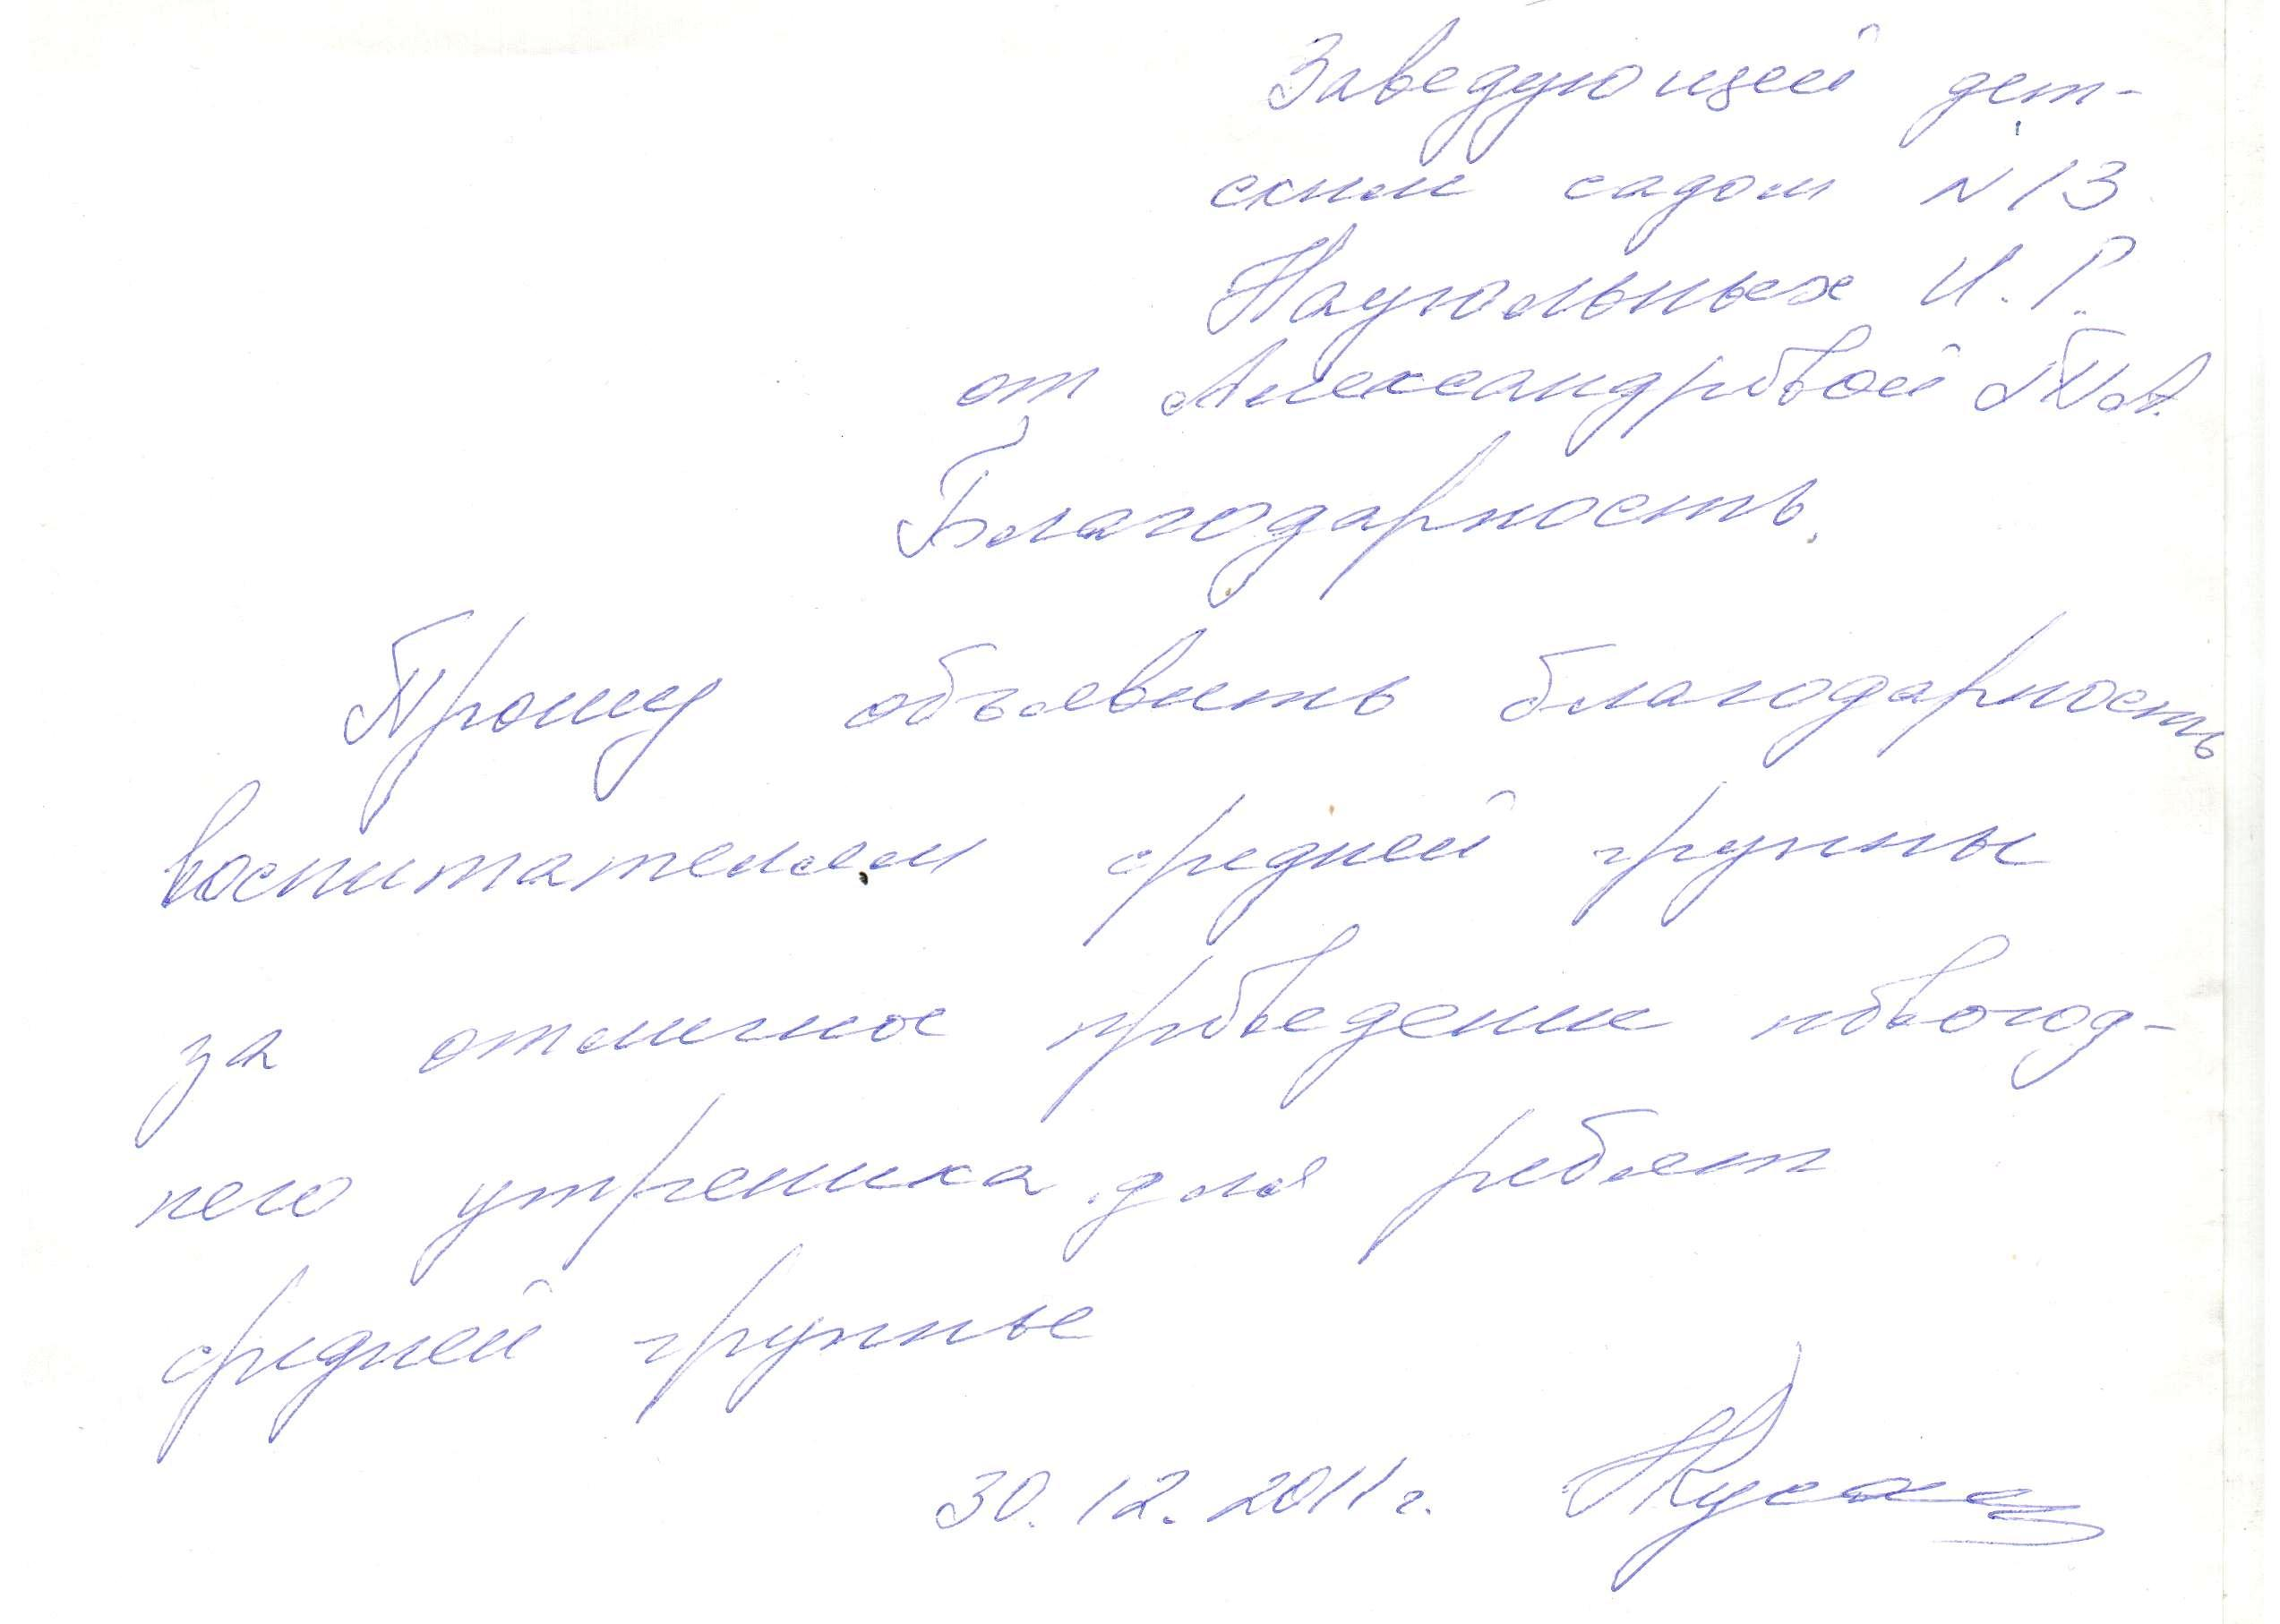 Заведующей дет-
ским садом N 13
Наугольных И.Р.
от Александровой Т.А.
Благодарность.
Прошу объявить благодарность
воспитателям средней группы
за отличное проведение новогод-
него утренника для ребят
средней группы
30.12.2011 г.